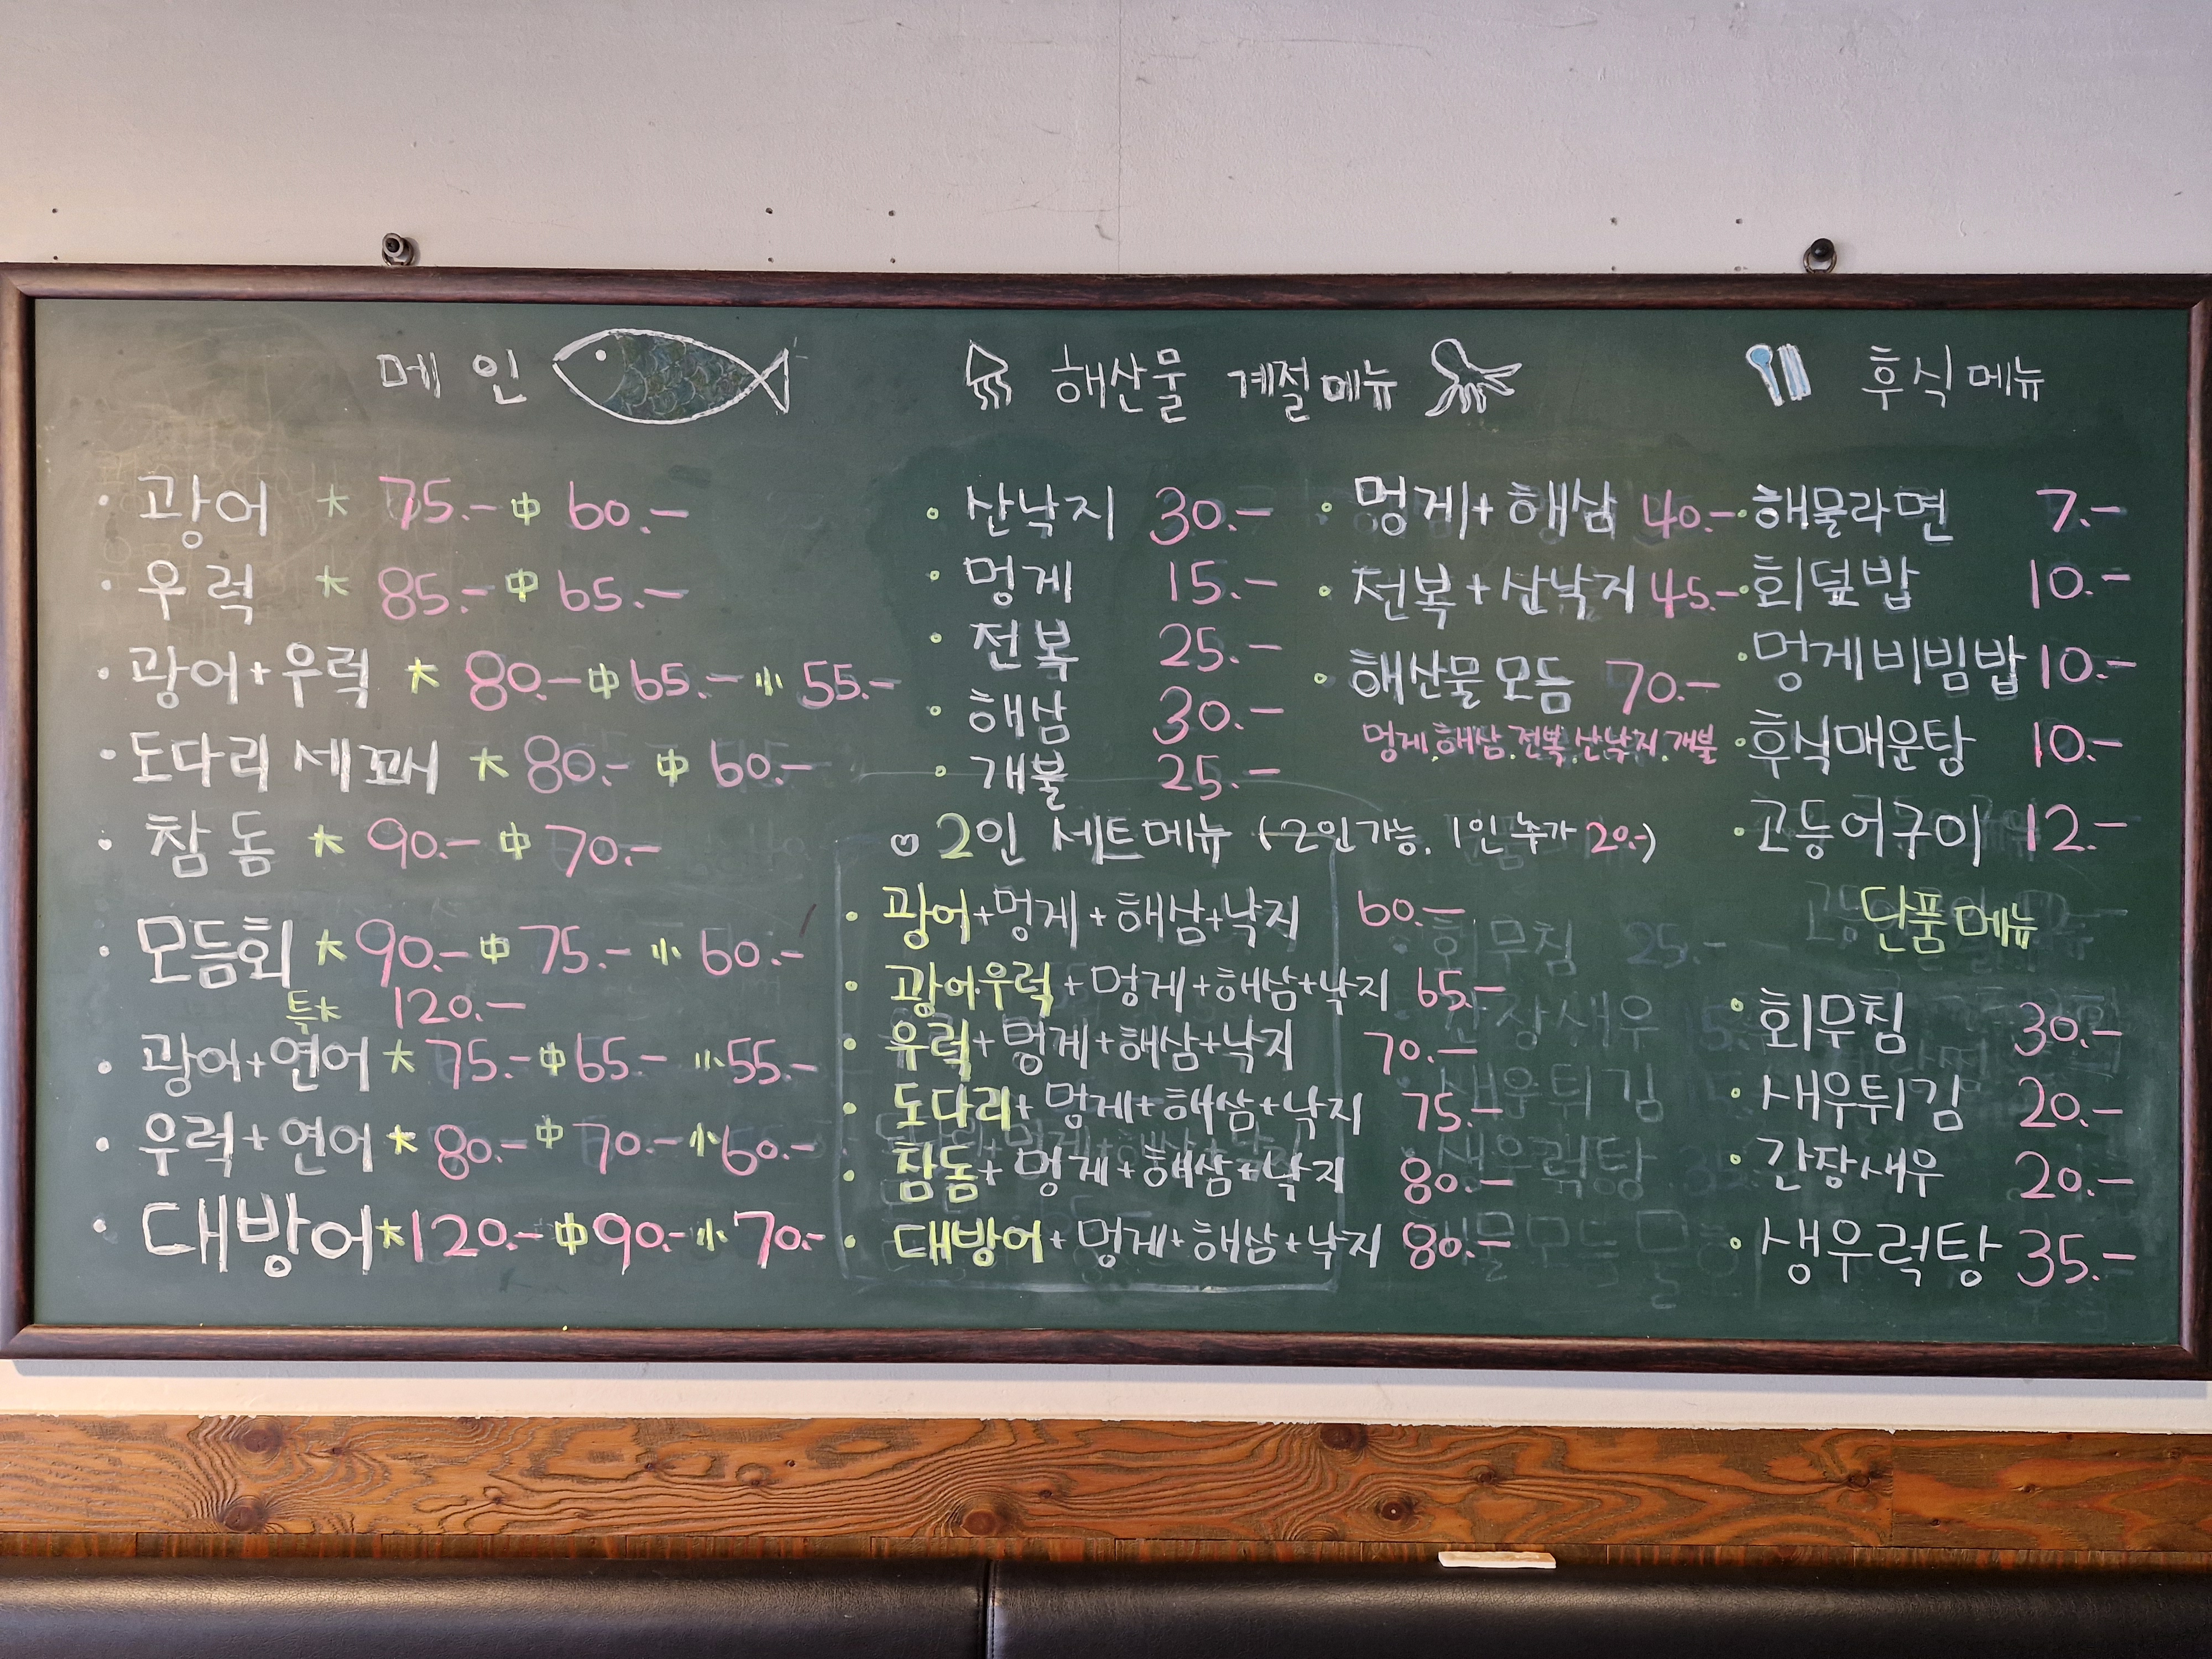 메인
광어 大 75.- 中 60.-
우럭 大 85.- 中 65.-
광어+우럭 大 80.- 中 65.- 小 55.-
도다리 세꼬시 大 80.- 中 60.-
참돔 大 90.- 中 70.-
모듬회 大 90.- 中 75.- 小 60.-
특大 120.-
광어+연어 大 75.- 中 65.- 小 55.-
우럭+연어 大 80.- 中 70.- 小 60.-
대방어 大 120.- 中 90.- 小 70.-
해산물 계절메뉴
산낙지 30.-
멍게 15.-
전복 25.-
해삼 30.-
개불 25.-
멍게+해삼 40.-
전복+산낙지 45.-
해산물모듬 70.-
멍게.해삼.전복.산낙지.개불
2인 세트메뉴 (2인가능, 1인 추가 20.-)
광어+멍게+해삼+낙지 60.-
광어우럭+멍게+해삼+낙지 65.-
우럭+멍게+해삼+낙지 70.-
도다리+멍게+해삼+낙지 75.-
참돔+멍게+해삼+낙지 80.-
대방어+멍게+해삼+낙지 80.-
후식메뉴
해물라면 7.-
회덮밥 10.-
멍게비빔밥 10.-
후식매운탕 10.-
고등어구이 12.-
단품메뉴
회무침 30.-
새우튀김 20.-
간장새우 20.-
생우럭탕 35.-